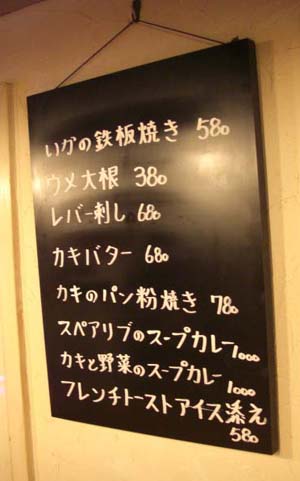 いかの鉄板焼き 580
ウメ大根 380
レバー刺し 680
カキバター 680
カキのパン粉焼き 780
スペアリブのスープカレー 1000
カキと野菜のスープカレー 1000
フレンチトーストアイス添え
580